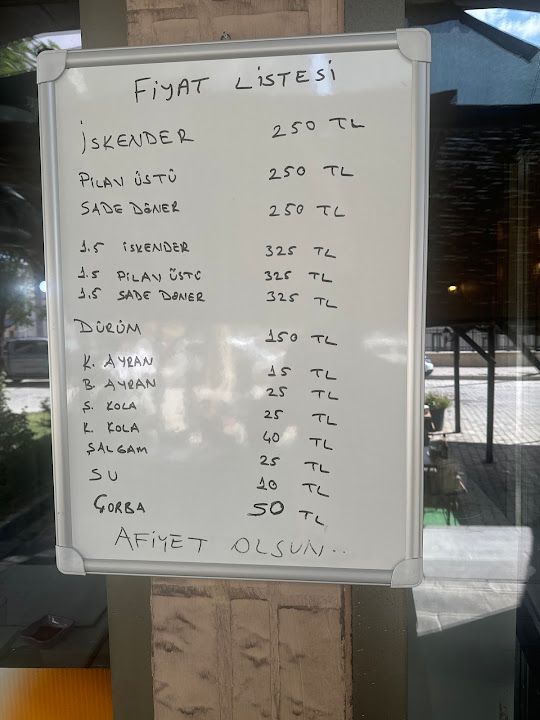 FİYAT LİSTESİ
İSKENDER 250 TL
PİLAV ÜSTÜ 250 TL
SADE DÖNER 250 TL
1.5 İSKENDER 325 TL
1.5 PİLAV ÜSTÜ 325 TL
1.5 SADE DÖNER 325 TL
DÜRÜM 150 TL
K. AYRAN 15 TL
B. AYRAN 25 TL
Ş. KOLA 25 TL
K. KOLA 40 TL
ŞALGAM 25 TL
SU 10 TL
ÇORBA 50 TL
AFİYET OLSUN..